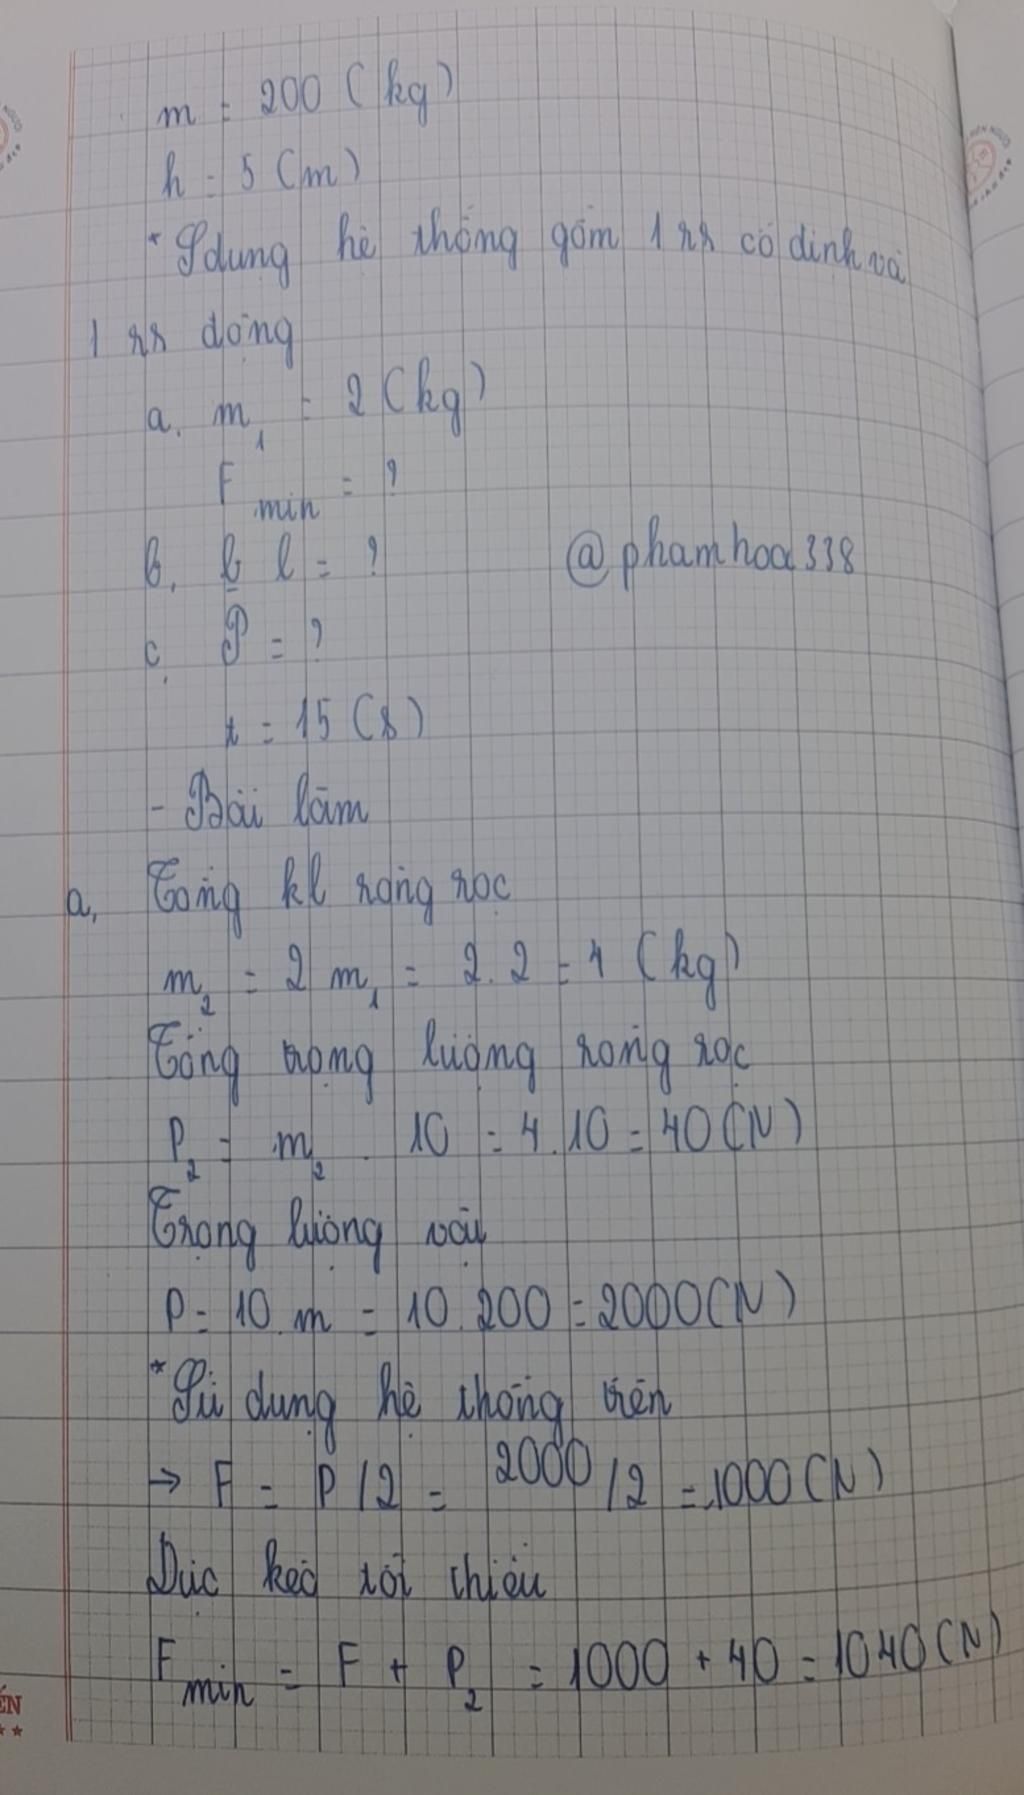 m = 200 (kg)
h = 5 (m)
* Sdụng hệ thống gồm 1 rr cố định và
1 rr động
a. m₁ = 2 (kg)
Fmin = ?
b. l = ?
@phamhoa338
c. P = ?
t = 15 (s)
- Bài làm
a, Tổng kl ròng rọc
m₂ = 2 m₁ = 2.2 = 4 (kg)
Tổng trọng lượng ròng rọc
P₂ = m₂ . 10 = 4.10 = 40 (N)
Trọng lượng vật
P = 10.m = 10.200 = 2000 (N)
* Sử dụng hệ thống trên
→ F = P/2 = 2000/2 = 1000 (N)
Lực kéo tối thiểu
Fmin = F + P₂ = 1000 + 40 = 1040 (N)